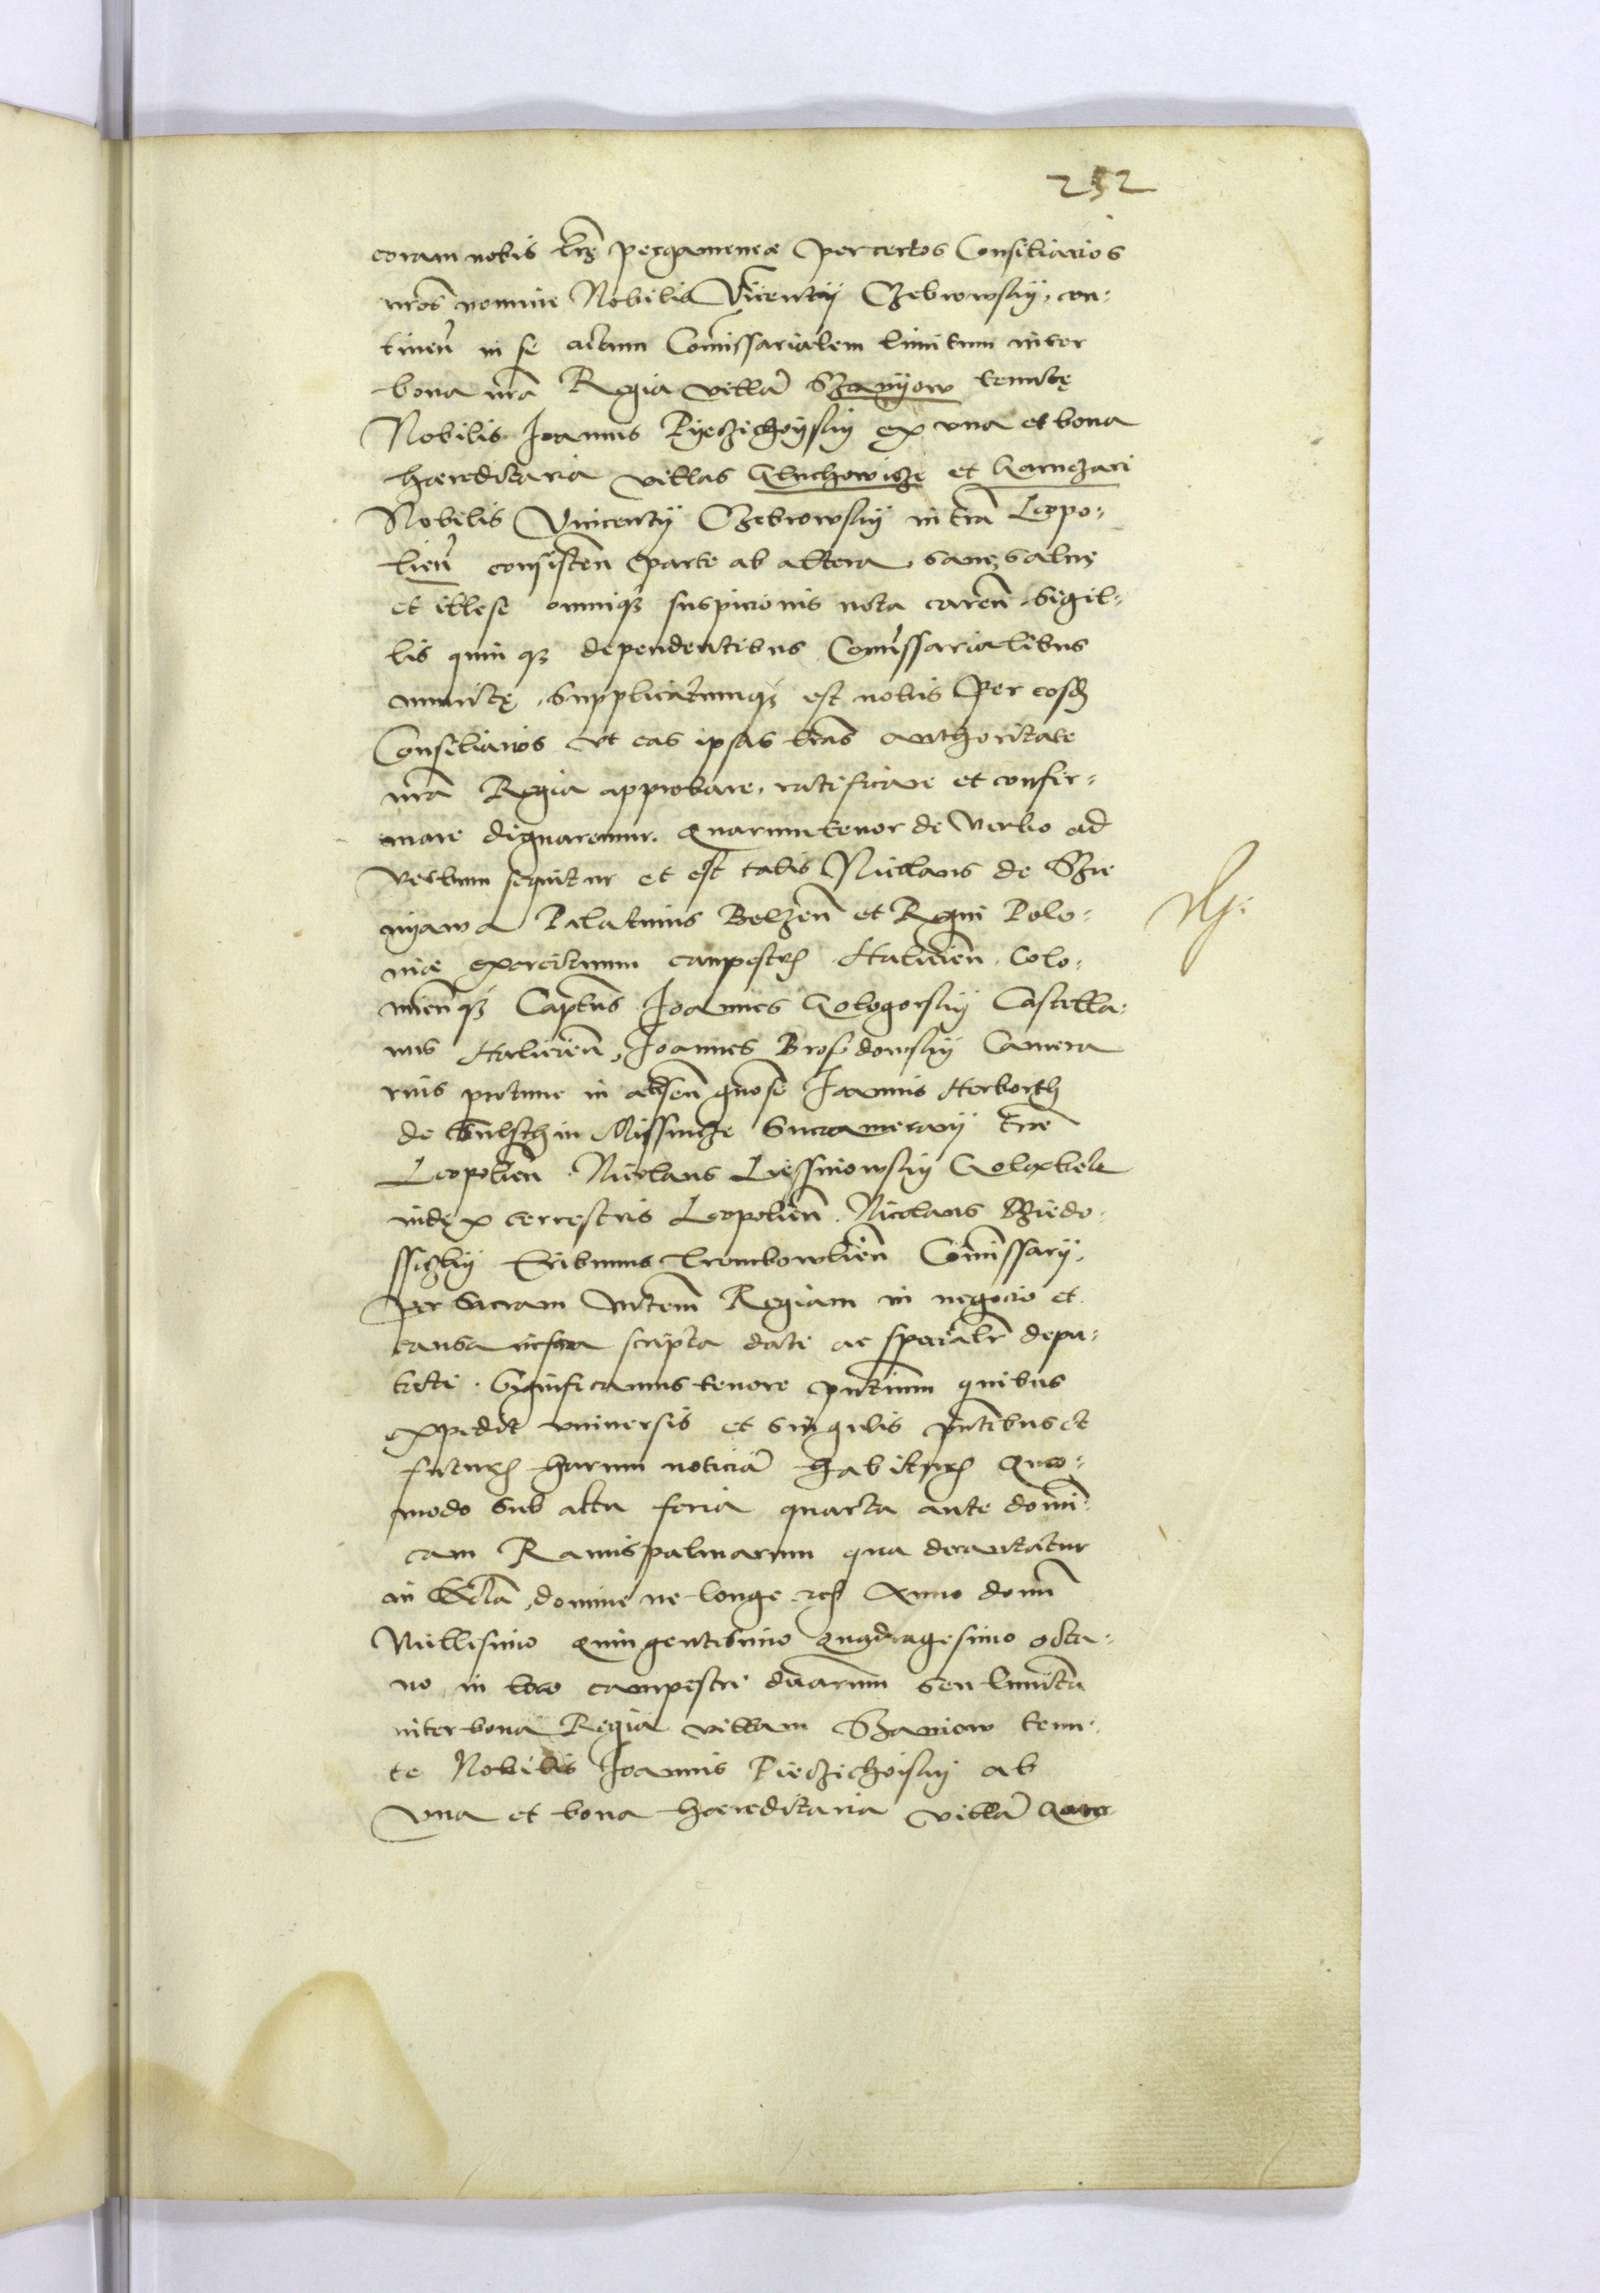 252
coram nobis lrę pergameneæ per certos Consiliarios
nros nomine Nobilis Vincentij Czebrowskij, con-
tineñ in se actum Comissarialem limitum inter
bona nrã Regia villã Szanyow tenutę
Nobilis Joannis Pyeczichoyskij ex una et bona
hæreditaria villas Gluchowicze et
Nobilis Vincentij Czebrowskij in trã Leopo-
lieñ consisteñ parte ab altera, sanę salvę
et illese omniq; suspicionis nota careñ, Sigil-
lis quinq; dependentibus Comissarialibus
munitę. Supplicatumq; est nobis per eosd
Consiliarios ut eas ipsas lras authoritate
nrã Regia approbare, ratificare et confir-
mare dignaremur. Quarum tenor de verbo ad
verbum sequitur et est talis Nicolaus de Szie
nyawa Palatinus Belzeñ et Regni Polo-
niæ exercituum campestr Halicieñ. Colo-
mieñq; Captns Joannes Gologorskij Castella-
nus Halicieñ, Joannes Brosdowskij Camera
rius pñtune in abseñ gnose Joannis Herborth
de Fulschin Missincze Succamerarij trẽ
Leopolieñ. Nicolaus Liessniowskij
iudęx terrestris Leopolieñ. Nicolaus Sziedo-
Tribunus Trombowlieñ Comissarij,
per Sacram Mtem Regiam in negocio et
causa infra scripta dati ac specialr depu-
tati. Significamus tenore pñtium quibus
expedit universis et singulis pñtibus et
futur harum noticiã habitur Quo-
modo Sub actu feria quarta ante domi-
cam Ramispalmarum qua decantatur
in Ecclã, domine ne longe rc Anno domi
Millesimo quingentesimo quadragesimo octa-
vo, in loco campestri duarum seu limitũ
inter bona Regia villam Szaniow tenu-
te Nobilis Joannis Pieczichoiskij ab
una et bona hæreditaria villã